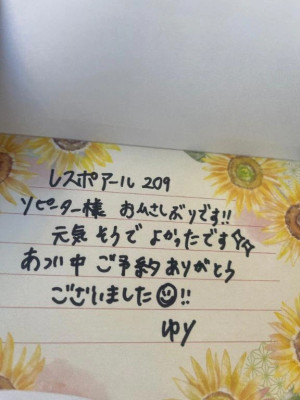 レスポアール 209
リピーター様 おひさしぶりです!!
元気そうで よかったです☆☆
あつい中 ご予約ありがとう
ございました☺!!
ゆり